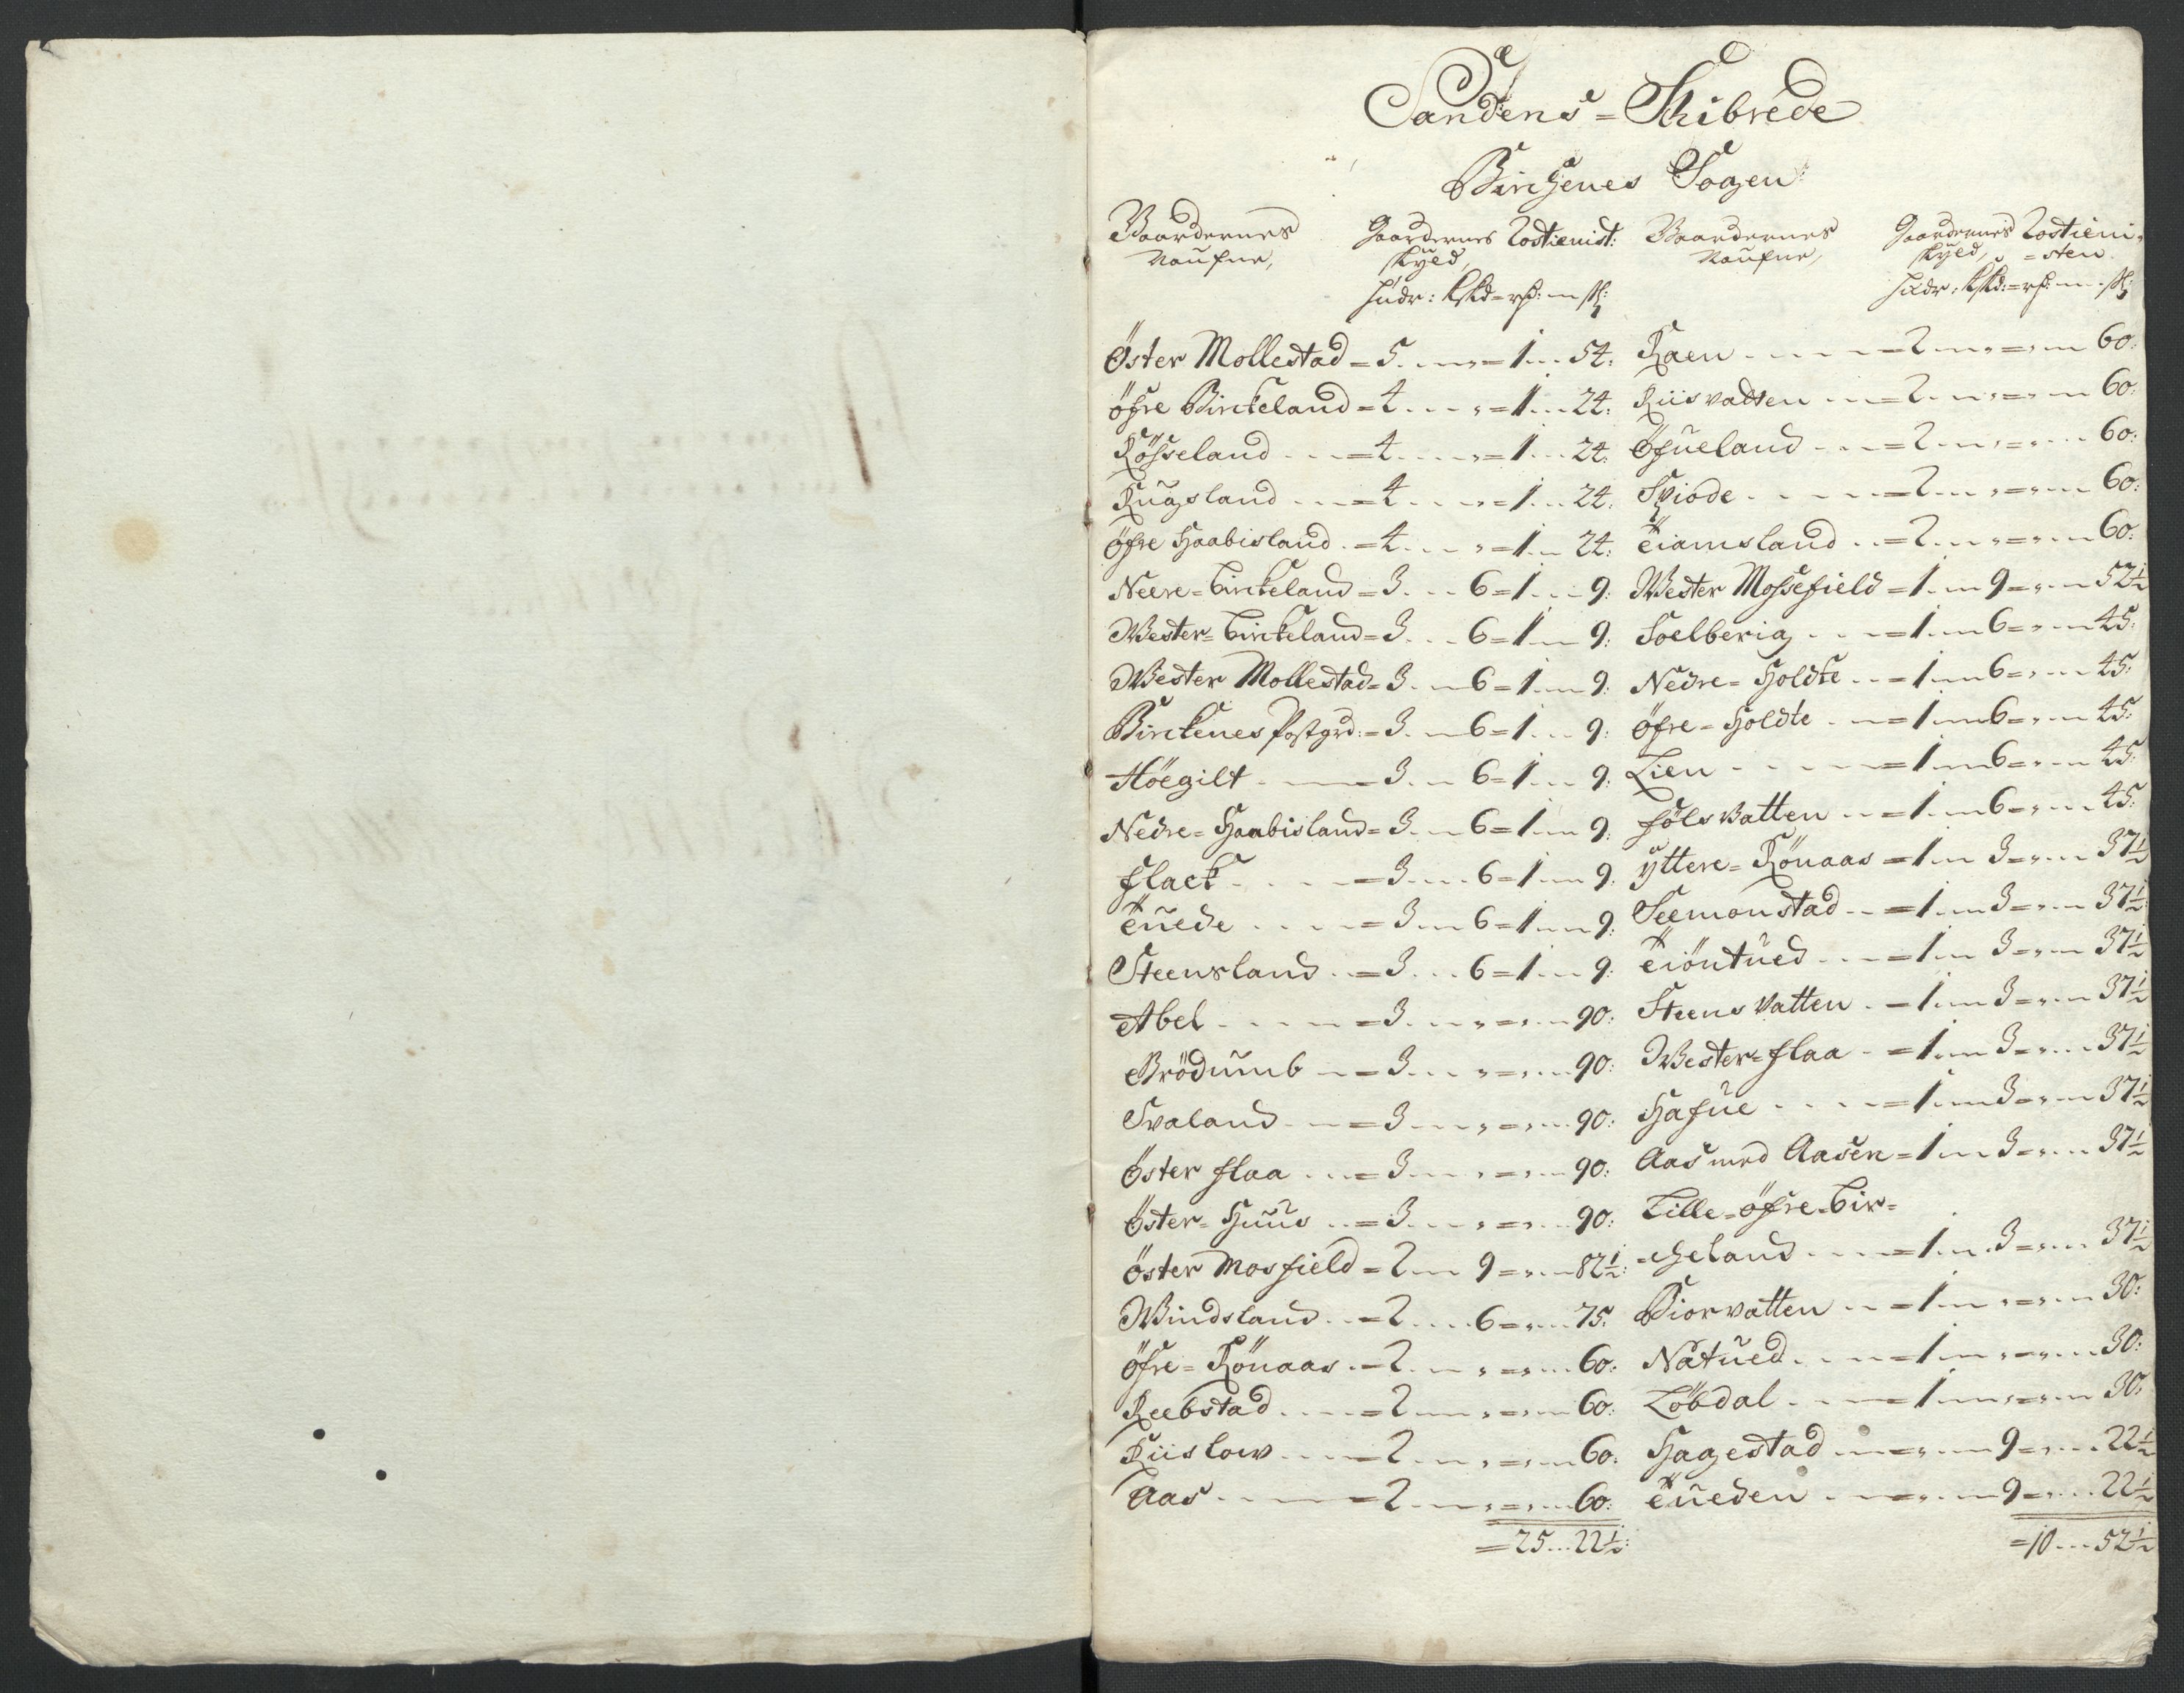 Sandens = Skibrede
Birchenes Sogen
Gaardernes Gaardernes Rostienist:
Naufne, Skyld,
Hudr: kskd = rd: m sk:
Öster Mollestad = 5 . . . „ = 1 . . 54:
öfre Birckeland = 4 . . . „ = 1 . . 24:
Rösseland . . . = 4 . . . „ = 1 . . 24:
Rugsland . . . = 4 . . . „ = 1 . . 24:
öfre Haabisland . = 4 . . . „ = 1 . . 24:
Neere = birckeland = 3 . . . 6 = 1 . . . 9:
Wester = birckeland = 3 . . . 6 = 1 . . 9:
Wester Mollestad = 3 . . 6 = 1 . . 9:
Birckenes Postgrd: = 3 . . 6 = 1 . . . 9:
Höegilt . . . = 3 . . 6 = 1 . . . 9:
Nedre = Haabisland = 3 . . 6 = 1 . . 9:
flack . . . . = 3 . . . 6 = 1 . . 9:
Tuede . . . . = 3 . . 6 = 1 . . 9:
Steensland . . = 3 . . . 6 = 1 . . 9:
Abel . . . . = 3 . . . „ = „ . . 90:
Brödumb . . = 3 . . . „ = „ . . 90:
Svaland . . = 3 . . . „ = „ . . 90:
Öster flaa . . . = 3 . . . „ = „ . . 90:
Öster = Huus . . = 3 . . . „ = „ . . 90:
Öster Mosfield = 2 . . . 9 = „ . . 82½:
Windsland . . = 2 . . . 6 = „ . . 75:
öfre = Rönaas . = 2 . . . „ = „ . . 60:
Reebstad . . . = 2 . . . „ = „ . . 60:
Riislow . . . = 2 . . . „ = „ . . 60:
Aas . . . . = 2 . . . „ = „ . . 60:
= 25 . . . 22½:
Gaardernes Gaardernes Rostieni =
Naufne, Skyld, = sten
Hudr: kskd: = rd: m sk:
Raen . . . . = 2 . . „ = „ . . 60:
Riisvatten . . = 2 . . „ = „ . . 60:
Öfueland . . . = 2 . . „ = „ . . 60:
Skiöde . . . . = 2 . . „ = „ . . 60:
Tiamsland . . = 2 . . „ = „ . . 60:
Wester Mossefield = 1 . . 9 = „ . . 52½
Soelberig . . . = 1 . . 6 = „ . . 45:
Nedre = Holdte . . = 1 . . 6 = „ . . 45:
öfre = Holdte . . = 1 . . 6 = „ . . 45:
Lien . . . . = 1 . . 6 = „ . . 45:
fölsvatten . . = 1 . . 6 = „ . . 45:
yttere = Rönaas = 1 . . 3 = „ . . 37½
Seemonstad . . = 1 . . 3 = „ . . 37½
Tiöntued . . . = 1 . . 3 = „ . . 37½
Steensvatten . = 1 . . 3 = „ . . 37½
Wester = flaa . = 1 . . 3 = „ . . 37½
Hafue . . . . = 1 . . 3 = „ . . 37½
Aas med Aasen = 1 . . 3 = „ . . 37½
Lille = öfre = bir =
= cheland . . . = 1 . . 3 = „ . . 37½
Biorvatten . . = 1 . . „ = „ . . 30:
Natued . . . = 1 . . „ = „ . . 30:
Löbdal . . . = 1 . . „ = „ . . 30:
Hagestad . . = „ . . 9 = „ . . 22½
Tueden . . . = „ . . 9 = „ . . 22½
= 10 . . . 52½